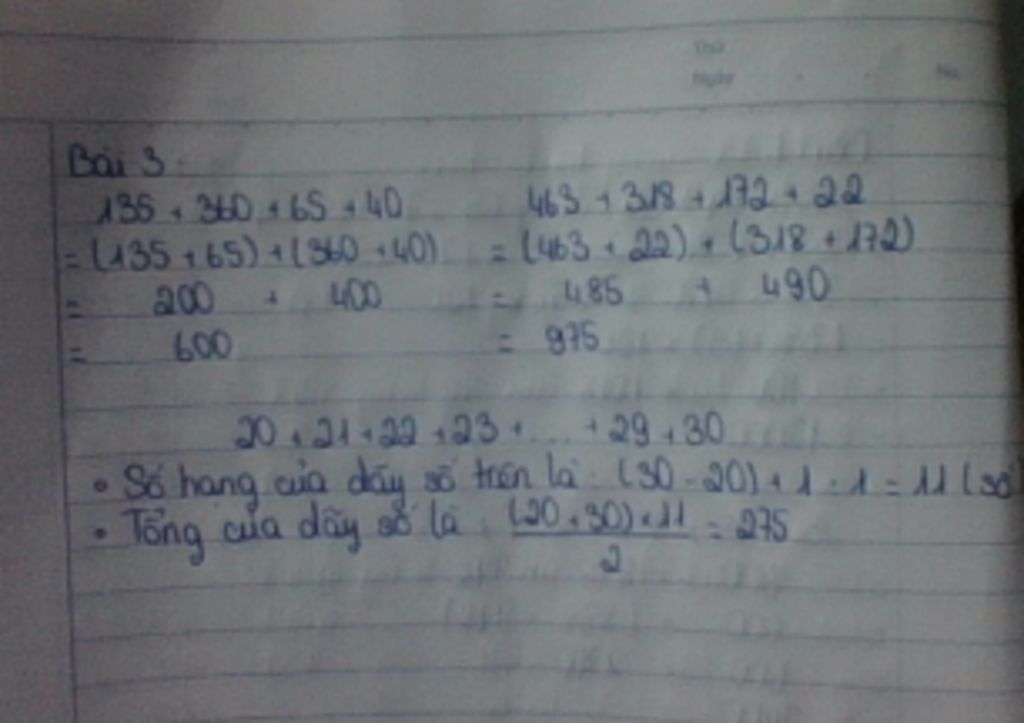 Thứ
Ngày . . No.
Bài 3
135 + 360 + 65 + 40
= (135 + 65) + (360 + 40)
= 200 + 400
= 600
463 + 318 + 172 + 22
= (463 + 22) + (318 + 172)
= 485 + 490
= 975
20 + 21 + 22 + 23 + .... + 29 + 30
• Số hang của dãy số trên là : (30 - 20) + 1 : 1 = 11 (số
• Tổng của dãy số là : (20 + 30) . 11 / 2 = 275